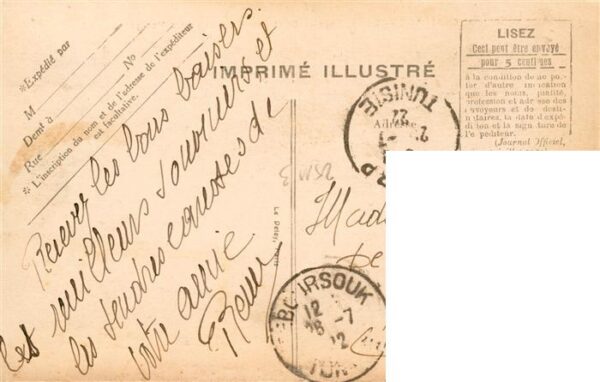 *Expédié par
M
No
Demt à
Rue
* L'inscription du nom et de l'adresse de l'expéditeur
est facultative.
IMPRIMÉ ILLUSTRÉ
LISEZ
Ceci peut être envoyé
pour 5 centimes
à la condition de ne por-
ter d'autre indication
que les nom, qualité,
profession et adresse des
envoyeurs et de desti-
nataires, la date d'expé
dition et la signature de
l'expéditeur.
(Journal Officiel,
Adresse
TUNISIE
22
Recevez les bons baisers
les meilleurs souvenirs et
les tendres caresses de
votre amie
Mad
De
BOURSOUK
12
18 -7
22
TUN